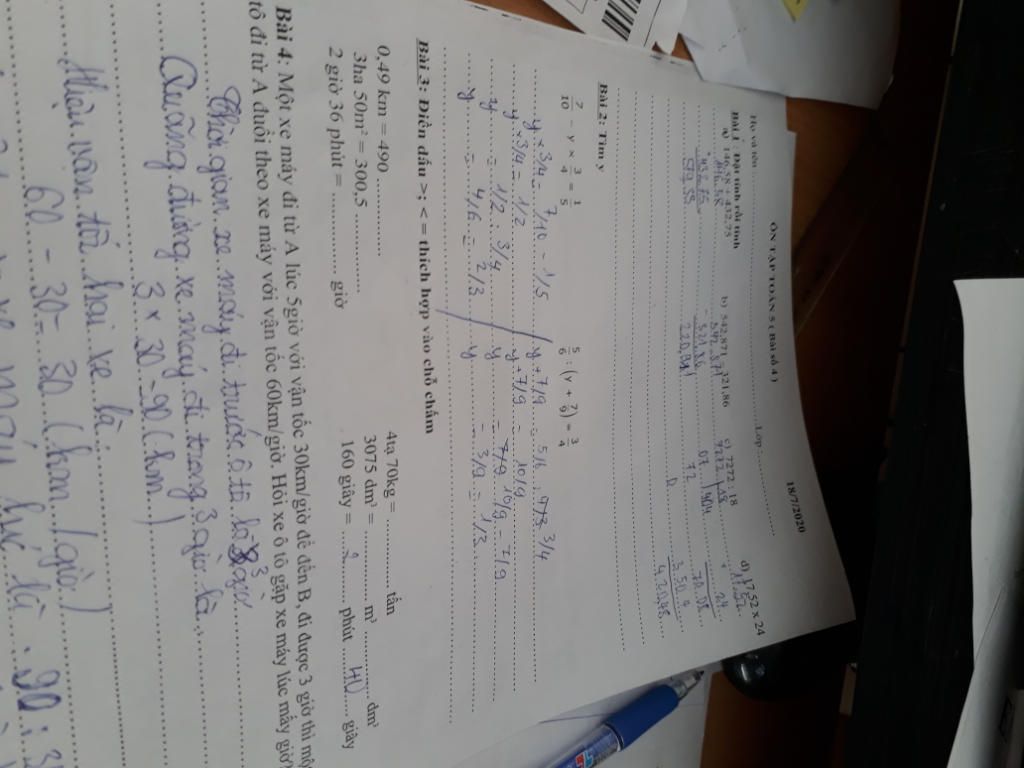 ÔN TẬP TOÁN 5 ( Bài số 4 )
18/7/2020
Họ và tên: Lớp:
Bài 1 : Đặt tính rồi tính
a) 146,58 + 432,75 b) 542,871 - 321,86 c) 7272 : 18 d) 17,52 x 24
Bài 2 : Tìm y
7/10 - y × 3/4 = 1/5
5/6 : (y + 7/9) = 3/4
y × 3/4 = 7/10 - 1/5 y + 7/9 = 5/6 : 3/4
y × 3/4 = 1/2 y + 7/9 = 10/9
y = 1/2 : 3/4 y = 10/9 - 7/9
y = 4/6 = 2/3 y = 3/9 = 1/3
Bài 3 : Điền dấu >; < = thích hợp vào chỗ chấm
0,49 km = 490 4tạ 70kg = tấn
3ha 50m² = 300,5 3075 dm³ = m³ dm³
2 giờ 36 phút = giờ 160 giây = 2 phút 40 giây
Bài 4: Một xe máy đi từ A lúc 5giờ với vận tốc 30km/giờ để đến B, đi được 3 giờ thì một
tô đi từ A đuổi theo xe máy với vận tốc 60km/giờ. Hỏi xe ô tô gặp xe máy lúc mấy giờ?
Thời gian xe máy đi trước ô tô là 3 giờ
Quãng đường xe máy đi trong 3 giờ là
3 × 30 = 90 (km)
Hiệu vận tốc hai xe là
60 - 30 = 30 (km/giờ)